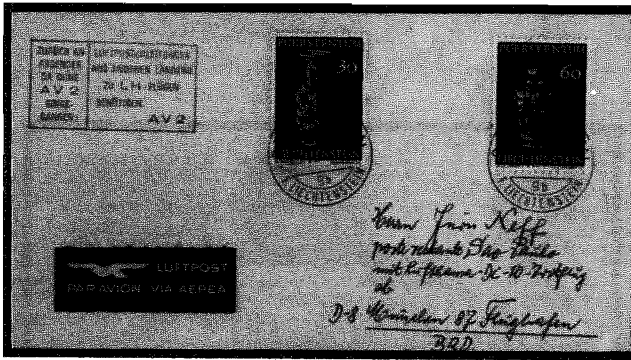 ZURÜCK AN
ABSENDER
DA OHNE
AV 2
EINGE-
GANGEN
LUFTPOSTLEITUNGEN
AUS ANDEREN LÄNDERN
ZU LH-FLÜGEN
BENÖTIGEN
AV 2
30
LIECHTENSTEIN
60
LIECHTENSTEIN
LIECHTENSTEIN
LIECHTENSTEIN
LUFTPOST
PAR AVION VIA AEREA
Herrn Jean Neff
poste restante Sao Paulo
mit Lufthansa-DC-10-Erstflug
ab
D-8 München 87 Flughafen
BRD